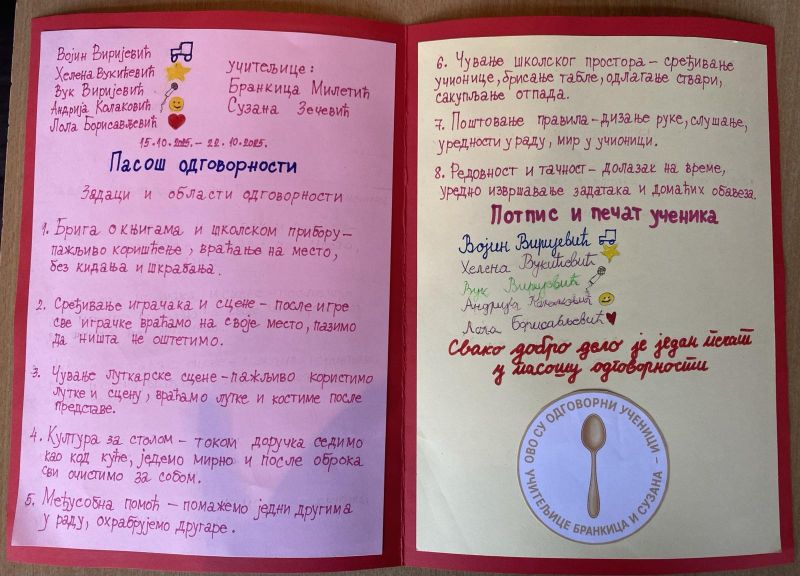 Војин Виријевић
Хелена Вукићевић
Вук Виријевић
Андрија Колаковић
Лола Борисављевић
учитељице:
Бранкица Милетић
Сузана Зечевић
15.10.2025. – 22.10.2025.
Пасош одговорности
Задаци и области одговорности
1. Брига о књигама и школском прибору –
пажљиво коришћење, враћање на место,
без кидања и шкрабања.
2. Сређивање играчака и сцене – после игре
све играчке враћамо на своје место, пазимо
да ништа не оштетимо.
3. Чување луткарске сцене – пажљиво користимо
лутке и сцену, враћамо лутке и костиме после
представе.
4. Култура за столом – током доручка седимо
као код куће, једемо мирно и после оброка
сви очистимо за собом.
5. Међусобна помоћ – помажемо једни другима
у раду, охрабрујемо другаре.
6. Чување школског простора – сређивање
учионице, брисање табле, одлагање ствари,
сакупљање отпада.
7. Поштовање правила – дизање руке, слушање,
уредности у раду, мир у учионици.
8. Редовност и тачност – долазак на време,
уредно извршавање задатака и домаћих обавеза.
Потпис и печат ученика
Војин Виријевић
Хелена Вукићевић
Вук Виријевић
Андрија Колаковић
Лола Борисављевић
Свако добро дело је један печат
у пасошу одговорности
ОВО СУ ОДГОВОРНИ УЧЕНИЦИ –
УЧИТЕЉИЦЕ БРАНКИЦА И СУЗАНА –